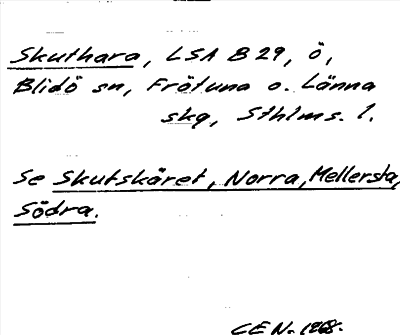 Skuthara, LSA B 29, Ö,
Blidö sn, Frötuna o. Länna
skg, Sthlms. l.
Se Skutskäret, Norra, Mellersta,
Södra.
CEN. 1968.